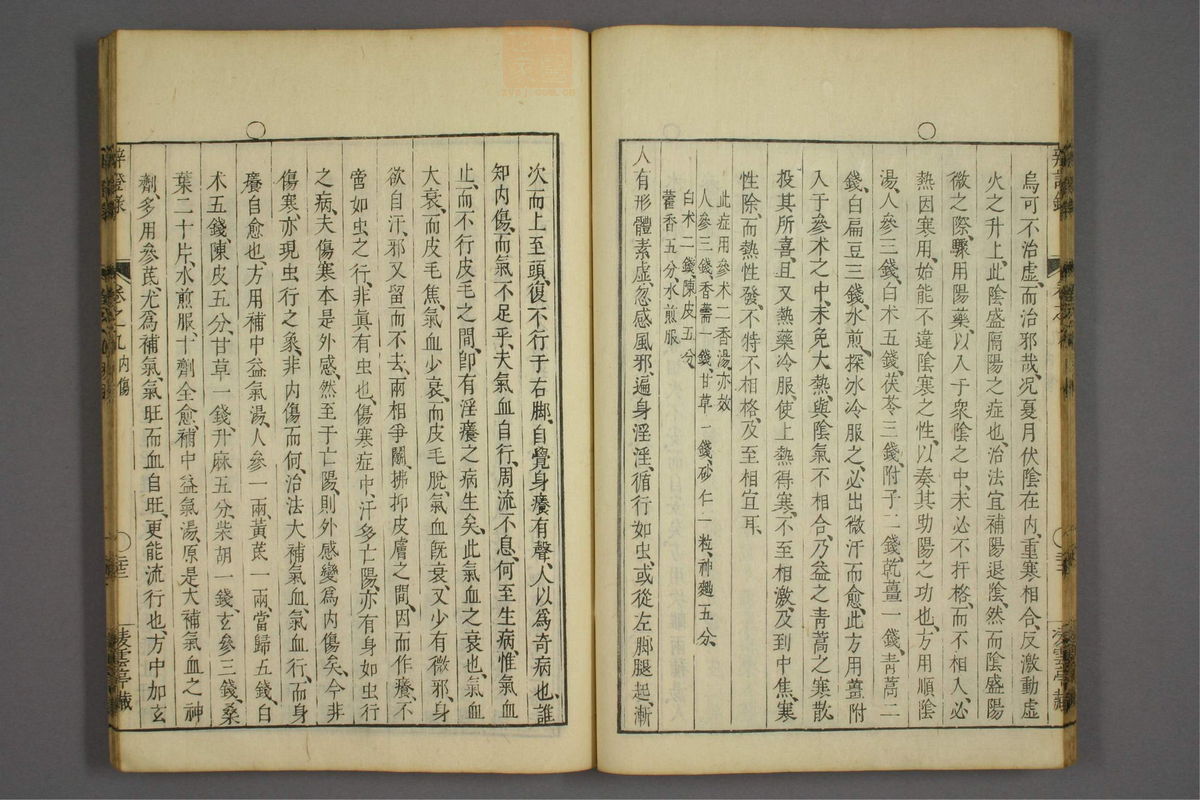 烏可不治虛、而治邪哉、况夏月伏陰在內、重寒相合、反激動虛
火之升上、此陰盛隔陽之症也、治法宜補陽退陰、然而陰盛陽
微之際、驟用陽藥、以入于衆陰之中、未必不扞格、而不相入、必
熱因寒用、始能不違陰寒之性、以奏其助陽之功也、方用順陰
湯、人參三錢、白术五錢、茯苓三錢、附子二錢、乾薑一錢、青蒿二
錢、白扁豆三錢、水煎、探冰冷服之、必出微汗而愈、此方用薑附
入于參术之中、未免大熱、與陰氣不相合、乃益之青蒿之寒散、
投其所喜、且又熱藥冷服、使上熱得寒、不至相激、及到中焦、寒
性除、而熱性發、不特不相格、及至相宜耳、
此症用參术二香湯、亦效
人參三錢、香薷一錢、甘草一錢、砂仁一粒、神麯五分、
白术二錢、陳皮五分、
藿香五分、水煎服
人有形體素虛、忽感風邪、遍身淫淫、循行如虫、或從左脚腿起、漸
次而上至頭、復下行于右脚、自覺身癢有聲、人以爲奇病也、誰
知內傷、而氣不足乎、夫氣血自行、周流不息、何至生病、惟氣血
止、而不行皮毛之間、卽有淫癢之病生矣、此氣血之衰也、氣血
大衰、而皮毛焦、氣血少衰、而皮毛脫、氣血旣衰、又少有微邪、身
欲自汗、邪又留而不去、兩相爭鬬、拂抑皮膚之間、因而作癢、不
啻如虫之行、非眞有虫也、傷寒症中、汗多亡陽、亦有身如虫行
之病、夫傷寒本是外感、然至于亡陽、則外感變爲內傷矣、今非
傷寒、亦現虫行之象、非內傷而何、治法大補氣血、氣血行、而身
癢自愈也、方用補中益氣湯、人參一兩、黃芪一兩、當歸五錢、白
术五錢、陳皮五分、甘草一錢、升麻五分、柴胡一錢、玄參三錢、桑
葉二十片、水煎服、十劑全愈、補中益氣湯、原是大補氣血之神
劑、多用參芪、尤爲補氣、氣旺而血自旺、更能流行也、方中加玄
辨證錄
卷之九內傷